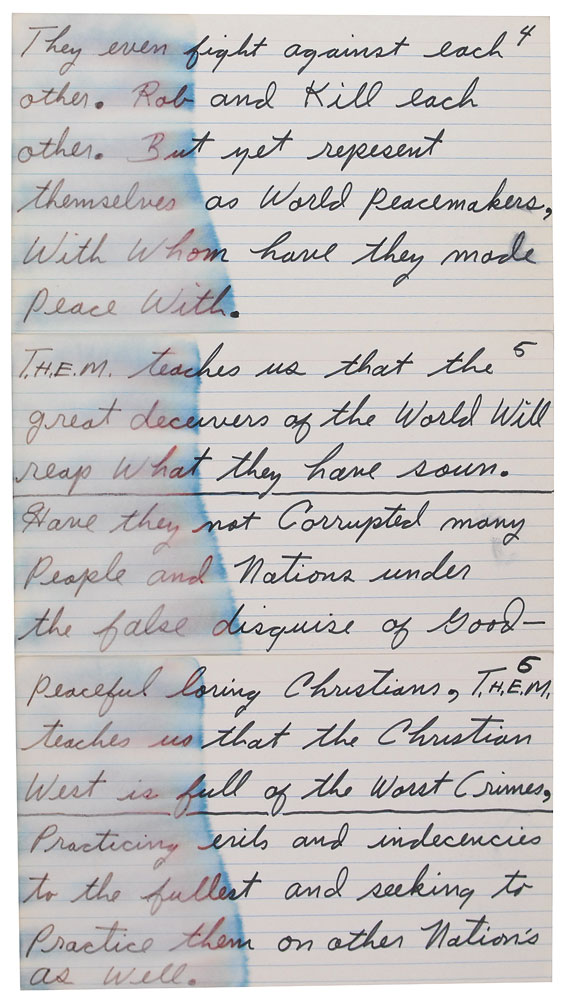 They even fight against each 4
other. Rob and Kill each
other. But yet repesent
themselves as World Peacemakers,
With Whom have they made
Peace With.
T.H.E.M. teaches us that the 5
great deceivers of the World Will
reap What they have soun.
Have they not Corrupted many
People and Nations under
the false disguise of Good-
Peaceful loving Christians, T.H.E.M. 6
teaches us that the Christian
West is full of the Worst Crimes,
Practicing evils and indecencies
to the fullest and seeking to
Practice them on other Nation's
as Well.